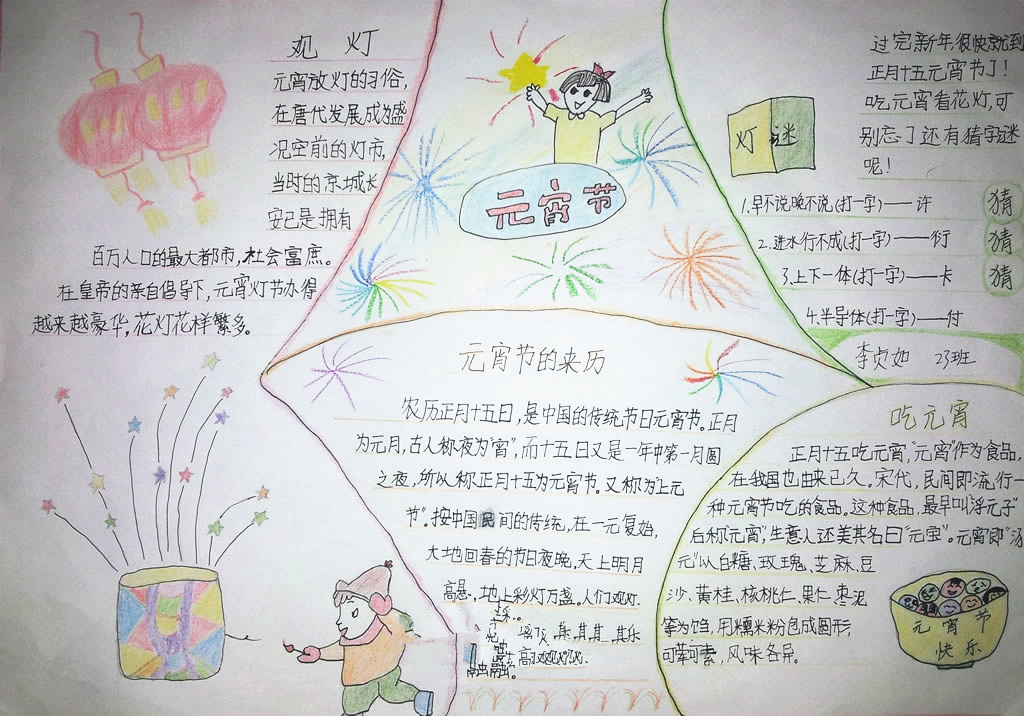 观 灯
元宵放灯的习俗,
在唐代发展成为盛
况空前的灯市,
当时的京城长
安已是拥有
百万人口的最大都市,社会富庶。
在皇帝的亲自倡导下,元宵灯节办得
越来越豪华,花灯花样繁多。
元宵节
过完新年,很快就到
正月十五元宵节了!
吃元宵看花灯,可
别忘了还有猜字谜
呢!
灯谜
1.早不说晚不说(打一字)——许
猜
2.进水行不成(打一字)——衍
猜
3.上下一体(打一字)——卡
猜
4.半导体(打一字)——付
李贞如 23班
元宵节的来历
农历正月十五日,是中国的传统节日元宵节。正月
为元月,古人称夜为"宵",而十五日又是一年中第一月圆
之夜,所以称正月十五为元宵节。又称为"上元
节"。按中国民间的传统,在一元复始,
大地回春的节日夜晚,天上明月
高悬,地上彩灯万盏。人们观灯、
其乐
融融。
吃元宵
正月十五吃元宵,"元宵"作为食品,
在我国也由来已久。宋代,民间即流行一
种元宵节吃的食品。这种食品,最早叫"浮元子"
后称"元宵",生意人还美其名曰"元宝"。元宵即"汤
元"以白糖、玫瑰、芝麻、豆
沙、黄桂、核桃仁、果仁、枣泥
等为馅,用糯米粉包成圆形,
可荤可素,风味各异。
元宵节
快乐